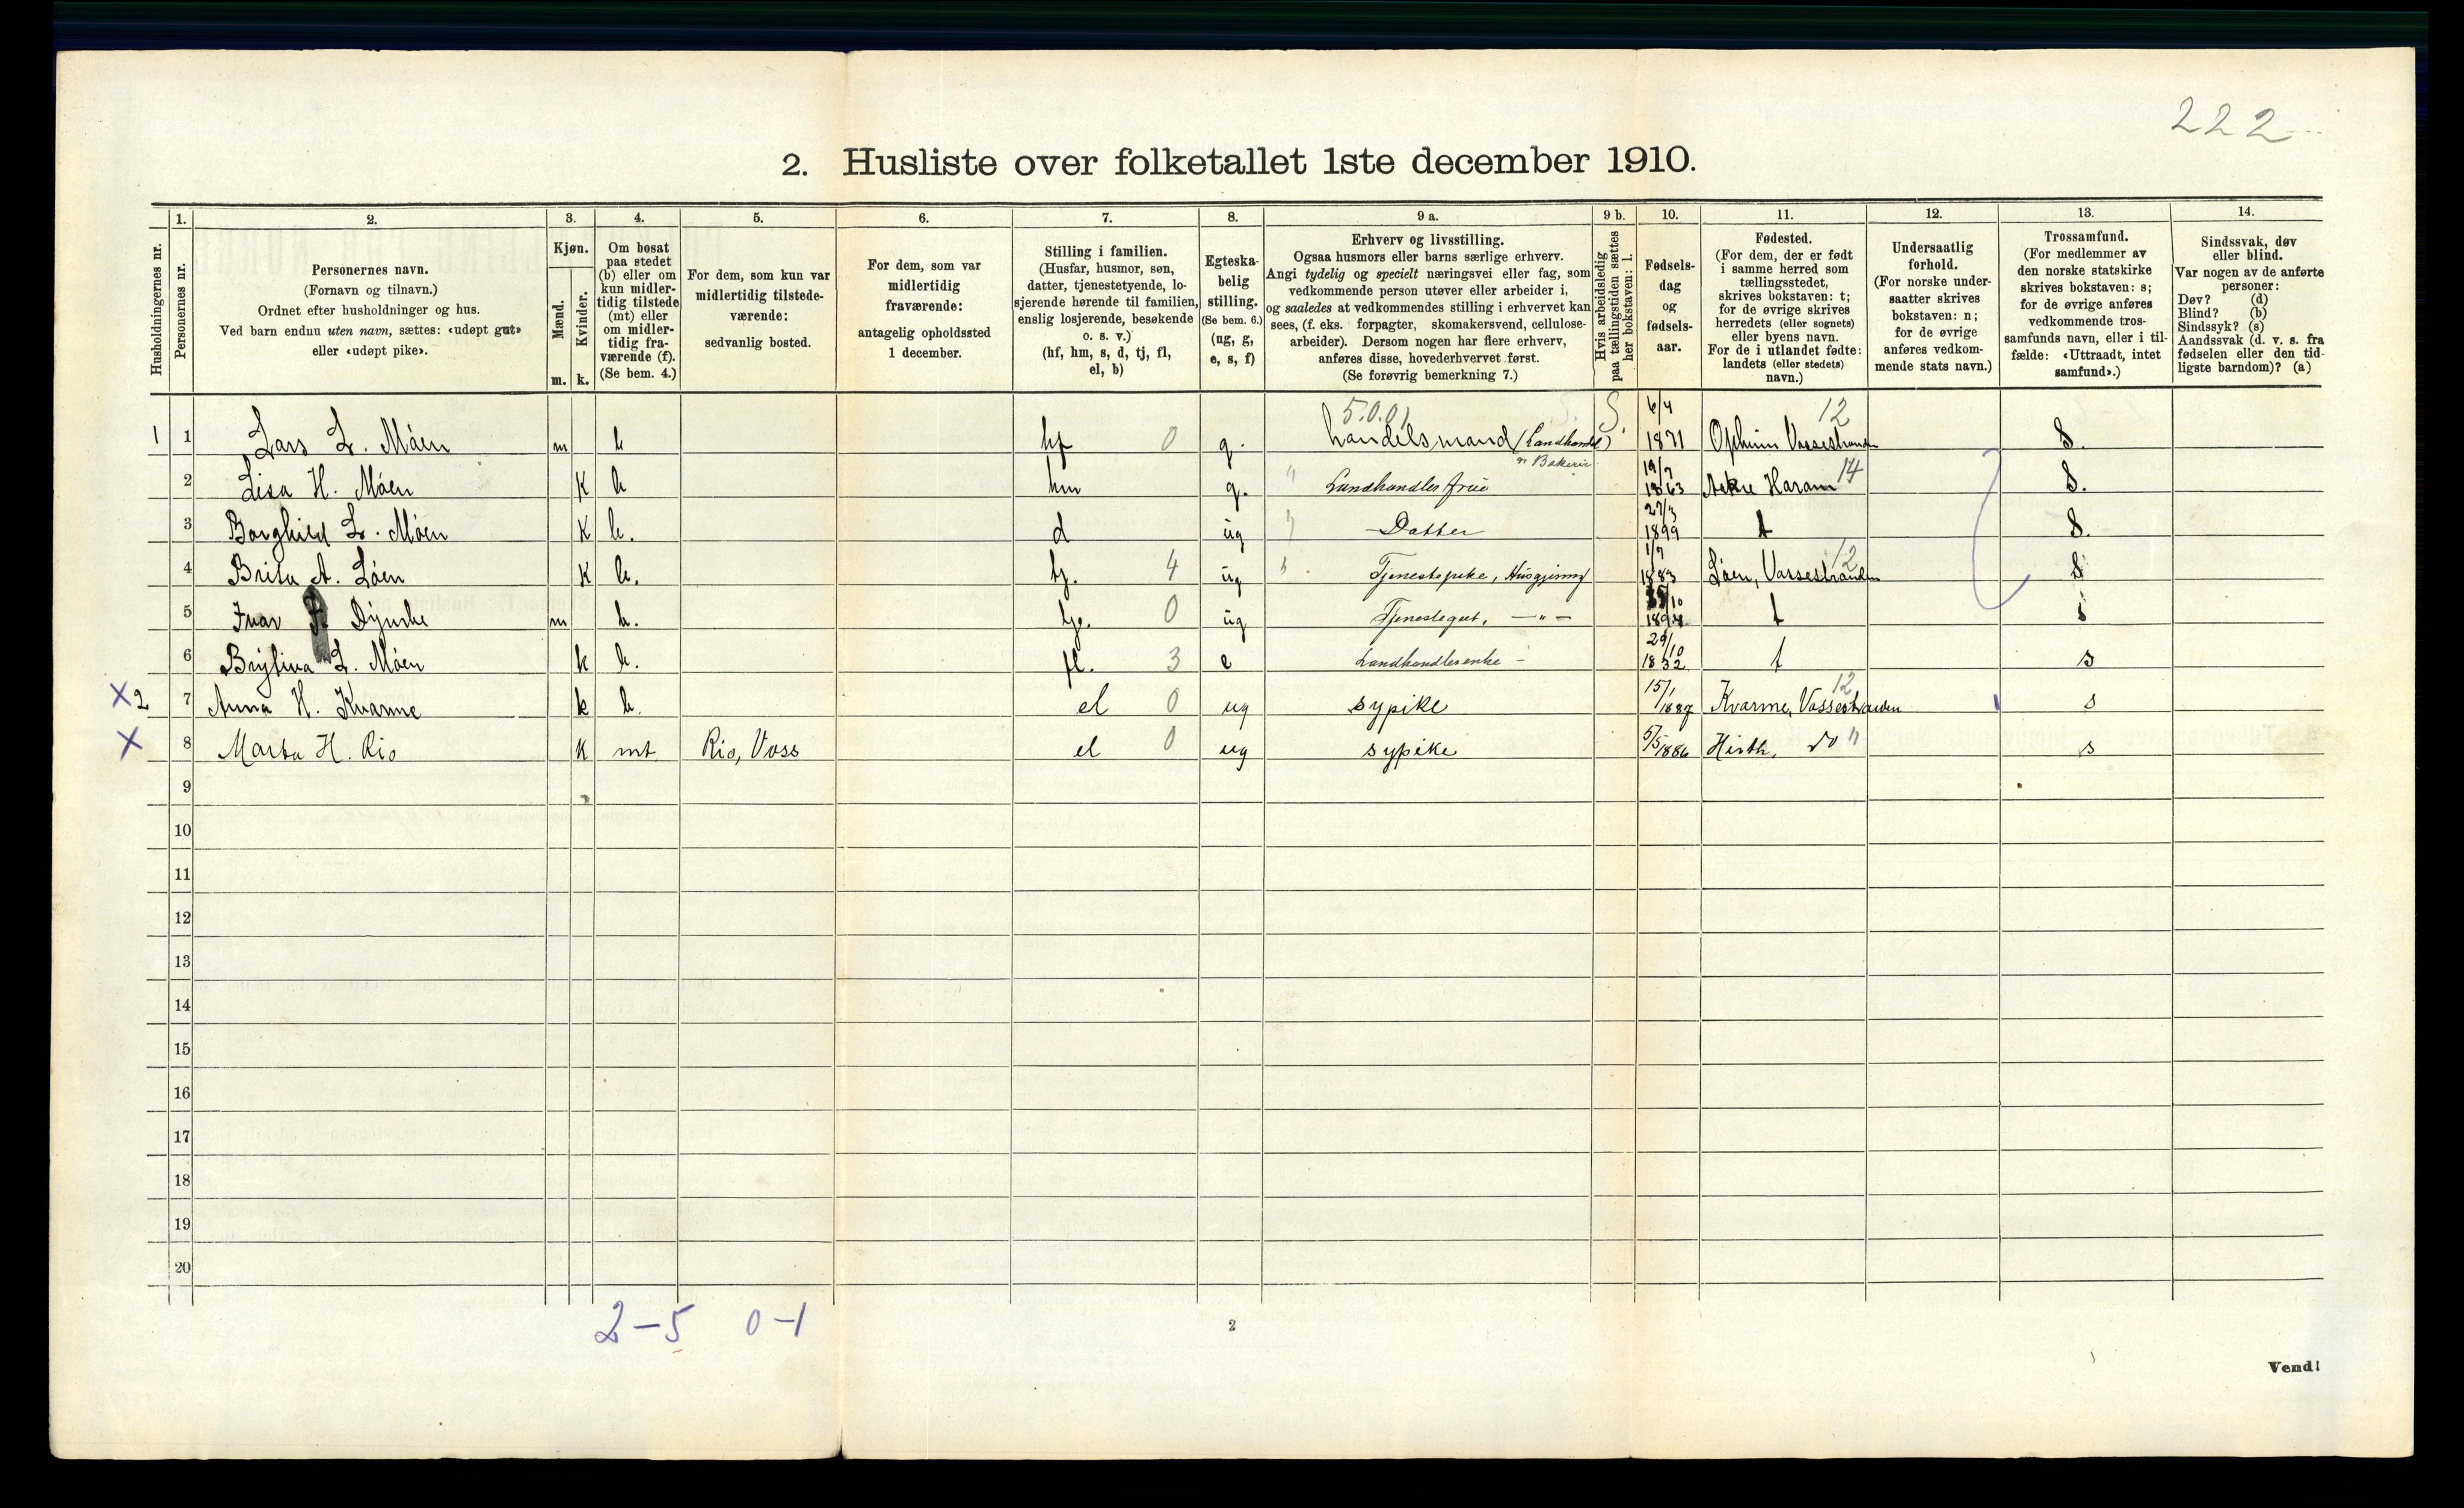 222
2. Husliste over folketallet 1ste december 1910.
Husholdningernes nr.
1. Personernes nr.
2. Personernes navn.
(Fornavn og tilnavn.)
Ordnet efter husholdninger og hus.
Ved barn endnu uten navn, sættes: «udøpt gut»
eller «udøpt pike».
3. Kjøn.
Mænd. m.
Kvinder. k.
4. Om bosat
paa stedet
(b) eller om
kun midler-
tidig tilstede
(mt) eller
om midler-
tidig fra-
værende (f).
(Se bem. 4.)
5. For dem, som kun var
midlertidig tilstede-
værende:
sedvanlig bosted.
6. For dem, som var
midlertidig
fraværende:
antagelig opholdssted
1 december.
7. Stilling i familien.
(Husfar, husmor, søn,
datter, tjenestetyende, lo-
sjerende hørende til familien,
enslig losjerende, besøkende
o. s. v.)
(hf, hm, s, d, tj, fl,
el, b)
8. Egteska-
belig
stilling.
(Se bem. 6.)
(ug, g,
e, s, f)
9 a. Erhverv og livsstilling.
Ogsaa husmors eller barns særlige erhverv.
Angi tydelig og specielt næringsvei eller fag, som
vedkommende person utøver eller arbeider i,
og saaledes at vedkommendes stilling i erhvervet kan
sees, (f. eks. forpagter, skomakersvend, cellulose-
arbeider). Dersom nogen har flere erhverv,
anføres disse, hovederhvervet først.
(Se forøvrig bemerkning 7.)
9 b. Hvis arbeidsledig
paa tællingstiden sættes
her bokstaven: l.
10. Fødsels-
dag
og
fødsels-
aar.
11. Fødested.
(For dem, der er født
i samme herred som
tællingsstedet,
skrives bokstaven: t;
for de øvrige skrives
herredets (eller sognets)
eller byens navn.
For de i utlandet fødte:
landets (eller stedets)
navn.)
12. Undersaatlig
forhold.
(For norske under-
saatter skrives
bokstaven: n;
for de øvrige
anføres vedkom-
mende stats navn.)
13. Trossamfund.
(For medlemmer av
den norske statskirke
skrives bokstaven: s;
for de øvrige anføres
vedkommende tros-
samfunds navn, eller i til-
fælde: «Uttraadt, intet
samfund».)
14. Sindssvak, døv
eller blind.
Var nogen av de anførte
personer:
Døv? (d)
Blind? (b)
Sindssyk? (s)
Aandssvak (d. v. s. fra
fødselen eller den tid-
ligste barndom)? (a)
5.0.01 S. 6/4 12
1 1 Lars L. Møen m b hf 0 g. handelsmand (Landhandel) 1871 Opheim Vossestranden s.
og Bakeri
2 Lisa H. Møen K b hm g. " Landhandler frue 19/7 1863 Haram 14 s.
3 Borghild L. Møen K b. d ug " Datter 27/3 1899 t s.
4 Brita A. Løen K b. tj. 4 ug " Tjenestepike, Husgjerning 1/7 1883 Løen, Vossestranden 12 s
5 Ivar m b. tj. 0 ug Tjenestegut, —"— /10 t s
6 L. Møen k b. fl. 3 e Landhandlerenke - 29/10 1832 t s
X 2 7 Anna H. Kvarme k b. el 0 ug sypike 15/1 1887 Kvarme, Vossestranden 12 s
X 8 Marta H. Rio K mt Rio, Voss el 0 ug sypike 5/5 1886 Hirth, do " s
9
10
11
12
13
14
15
16
17
18
19
20
2–5 0–1
2
Vend!